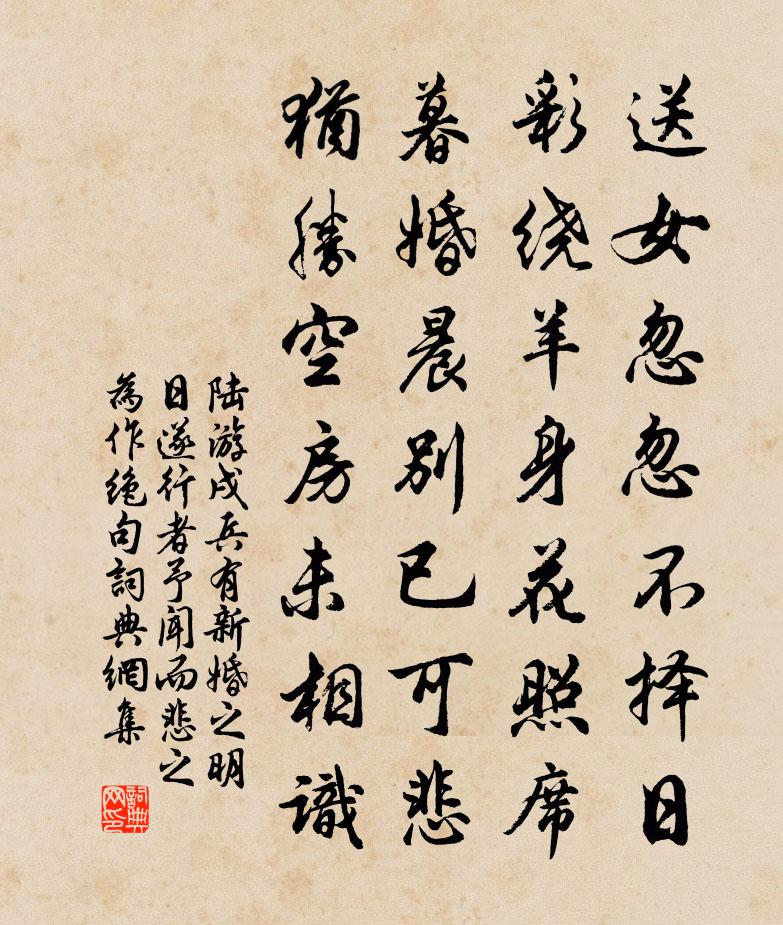 送女忽忽不择日
彩绕羊身花照席
暮婚晨别已可悲
猶勝空房未相識
陆游戍兵有新婚之明
日遂行者予闻而悲之
為作绝句詞典網集
詞典
网印